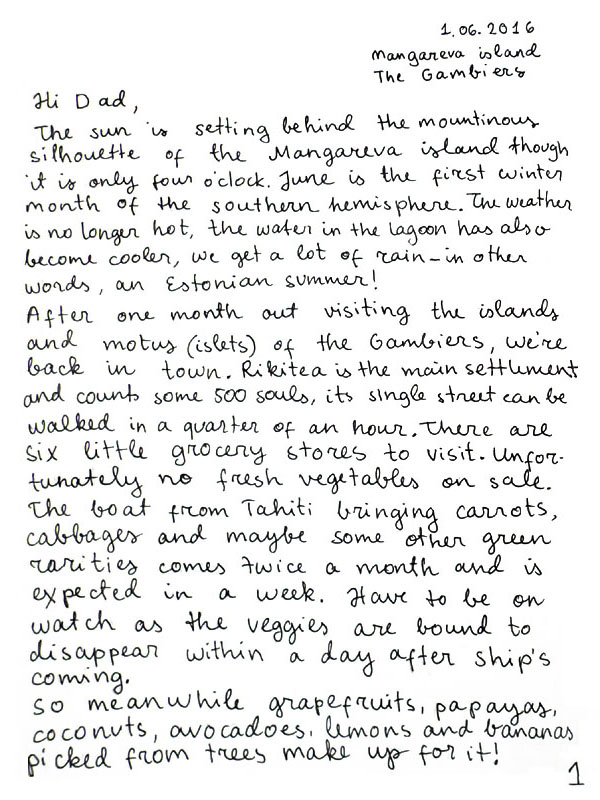 1.06.2016
Mangareva island
The Gambiers
Hi Dad,
The sun is setting behind the mountinous
silhouette of the Mangareva island though
it is only four o'clock. June is the first winter
month of the southern hemisphere. The weather
is no longer hot, the water in the lagoon has also
become cooler, we get a lot of rain - in other
words, an Estonian summer!
After one month out visiting the islands
and motus (islets) of the Gambiers, we're
back in town. Rikitea is the main settlument
and counts some 500 souls, its single street can be
walked in a quarter of an hour. There are
six little grocery stores to visit. Unfor-
tunately no fresh vegetables on sale.
The boat from Tahiti bringing carrots,
cabbages and maybe some other green
rarities comes twice a month and is
expected in a week. Have to be on
watch as the veggies are bound to
disappear within a day after ship's
coming.
So meanwhile grapefruits, papayas,
coconuts, avocadoes, lemons and bananas
picked from trees make up for it!
1